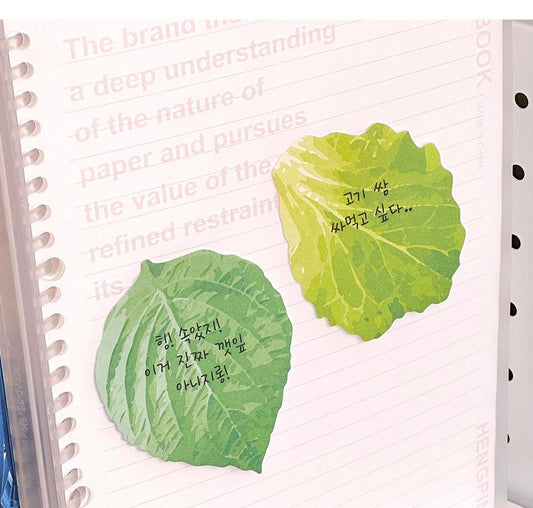 The brand tha
a deep understanding
of the nature of
paper and pursues
the value of the
refined restraint
its
BOOK
MADE IN CHINA
고기 쌈
싸먹고 싶다..
힝! 속았지!
이거 진짜 깻잎
아니지롱!
HENGPIN